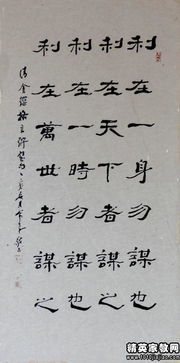 利在一身勿謀也
利在天下者謀之
利在一時勿謀也
利在萬世者謀之
清金纓格言
精英家教网